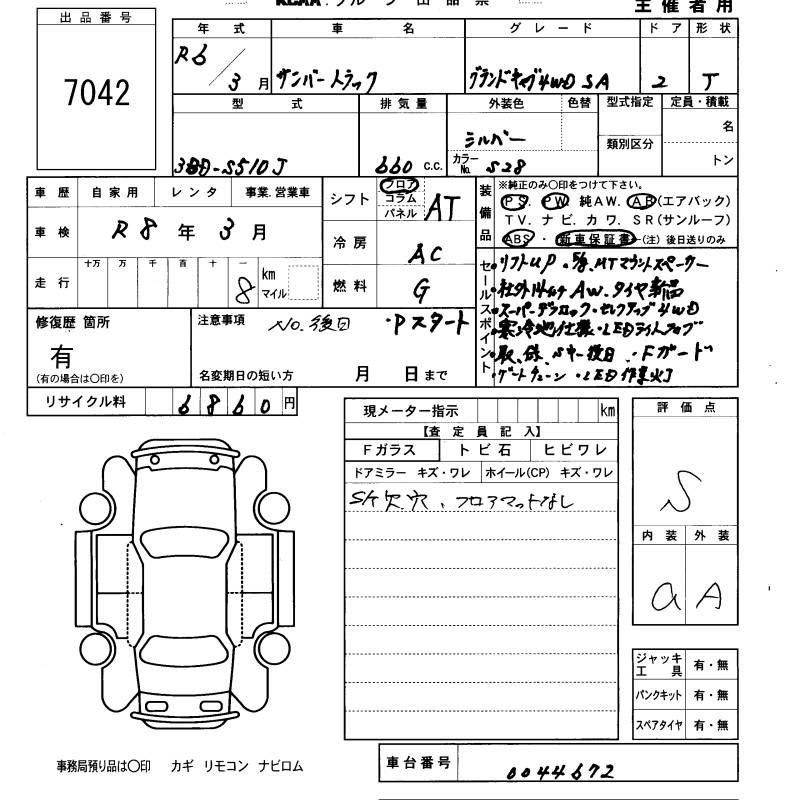 主催者用
出品番号
7042
年式 車名 グレード ドア 形状
R6 / 3月 サンバートラック グランドキャブ4WD SA 2 T
型式 排気量 外装色 色替 型式指定 定員・積載
類別区分 名
3BD-S510J 660 C.C. シルバー
カラーNo. S28 トン
車歴 自家用 レンタ 事業.営業車
車検 R8年3月
走行 十万 万 千 百 十 一
8 km マイル
シフト フロア コラム パネル AT
冷房 AC
燃料 G
装備品
※純正のみ〇印をつけて下さい。
PS. PW 純AW. AB(エアバック)
TV. ナビ. カワ. SR(サンルーフ)
ABS・新車保証書(注)後日送りのみ
セールスポイント
・リフトUP
・社外14インチAW.タイヤ新品
・スーパーデフロック・セレクティブ4WD
・寒冷地仕様・LEDライトフォグ
・取.保.Sキー後日.・Fガード
・ゲートチェーン・LED作業灯
修復歴 箇所
有
(有の場合は〇印を)
注意事項 No.後日 ・Pスタート
名変期日の短い方 月 日まで
リサイクル料 6860円
現メーター指示 km
【査定員記入】
Fガラス トビ石 ヒビワレ
ドアミラー キズ・ワレ ホイール(CP) キズ・ワレ
Sケ欠穴、フロアマットなし
評価点
S
内装 外装
a A
ジャッキ工具 有・無
パンクキット 有・無
スペアタイヤ 有・無
事務局預り品は〇印 カギ リモコン ナビロム
車台番号 0044672